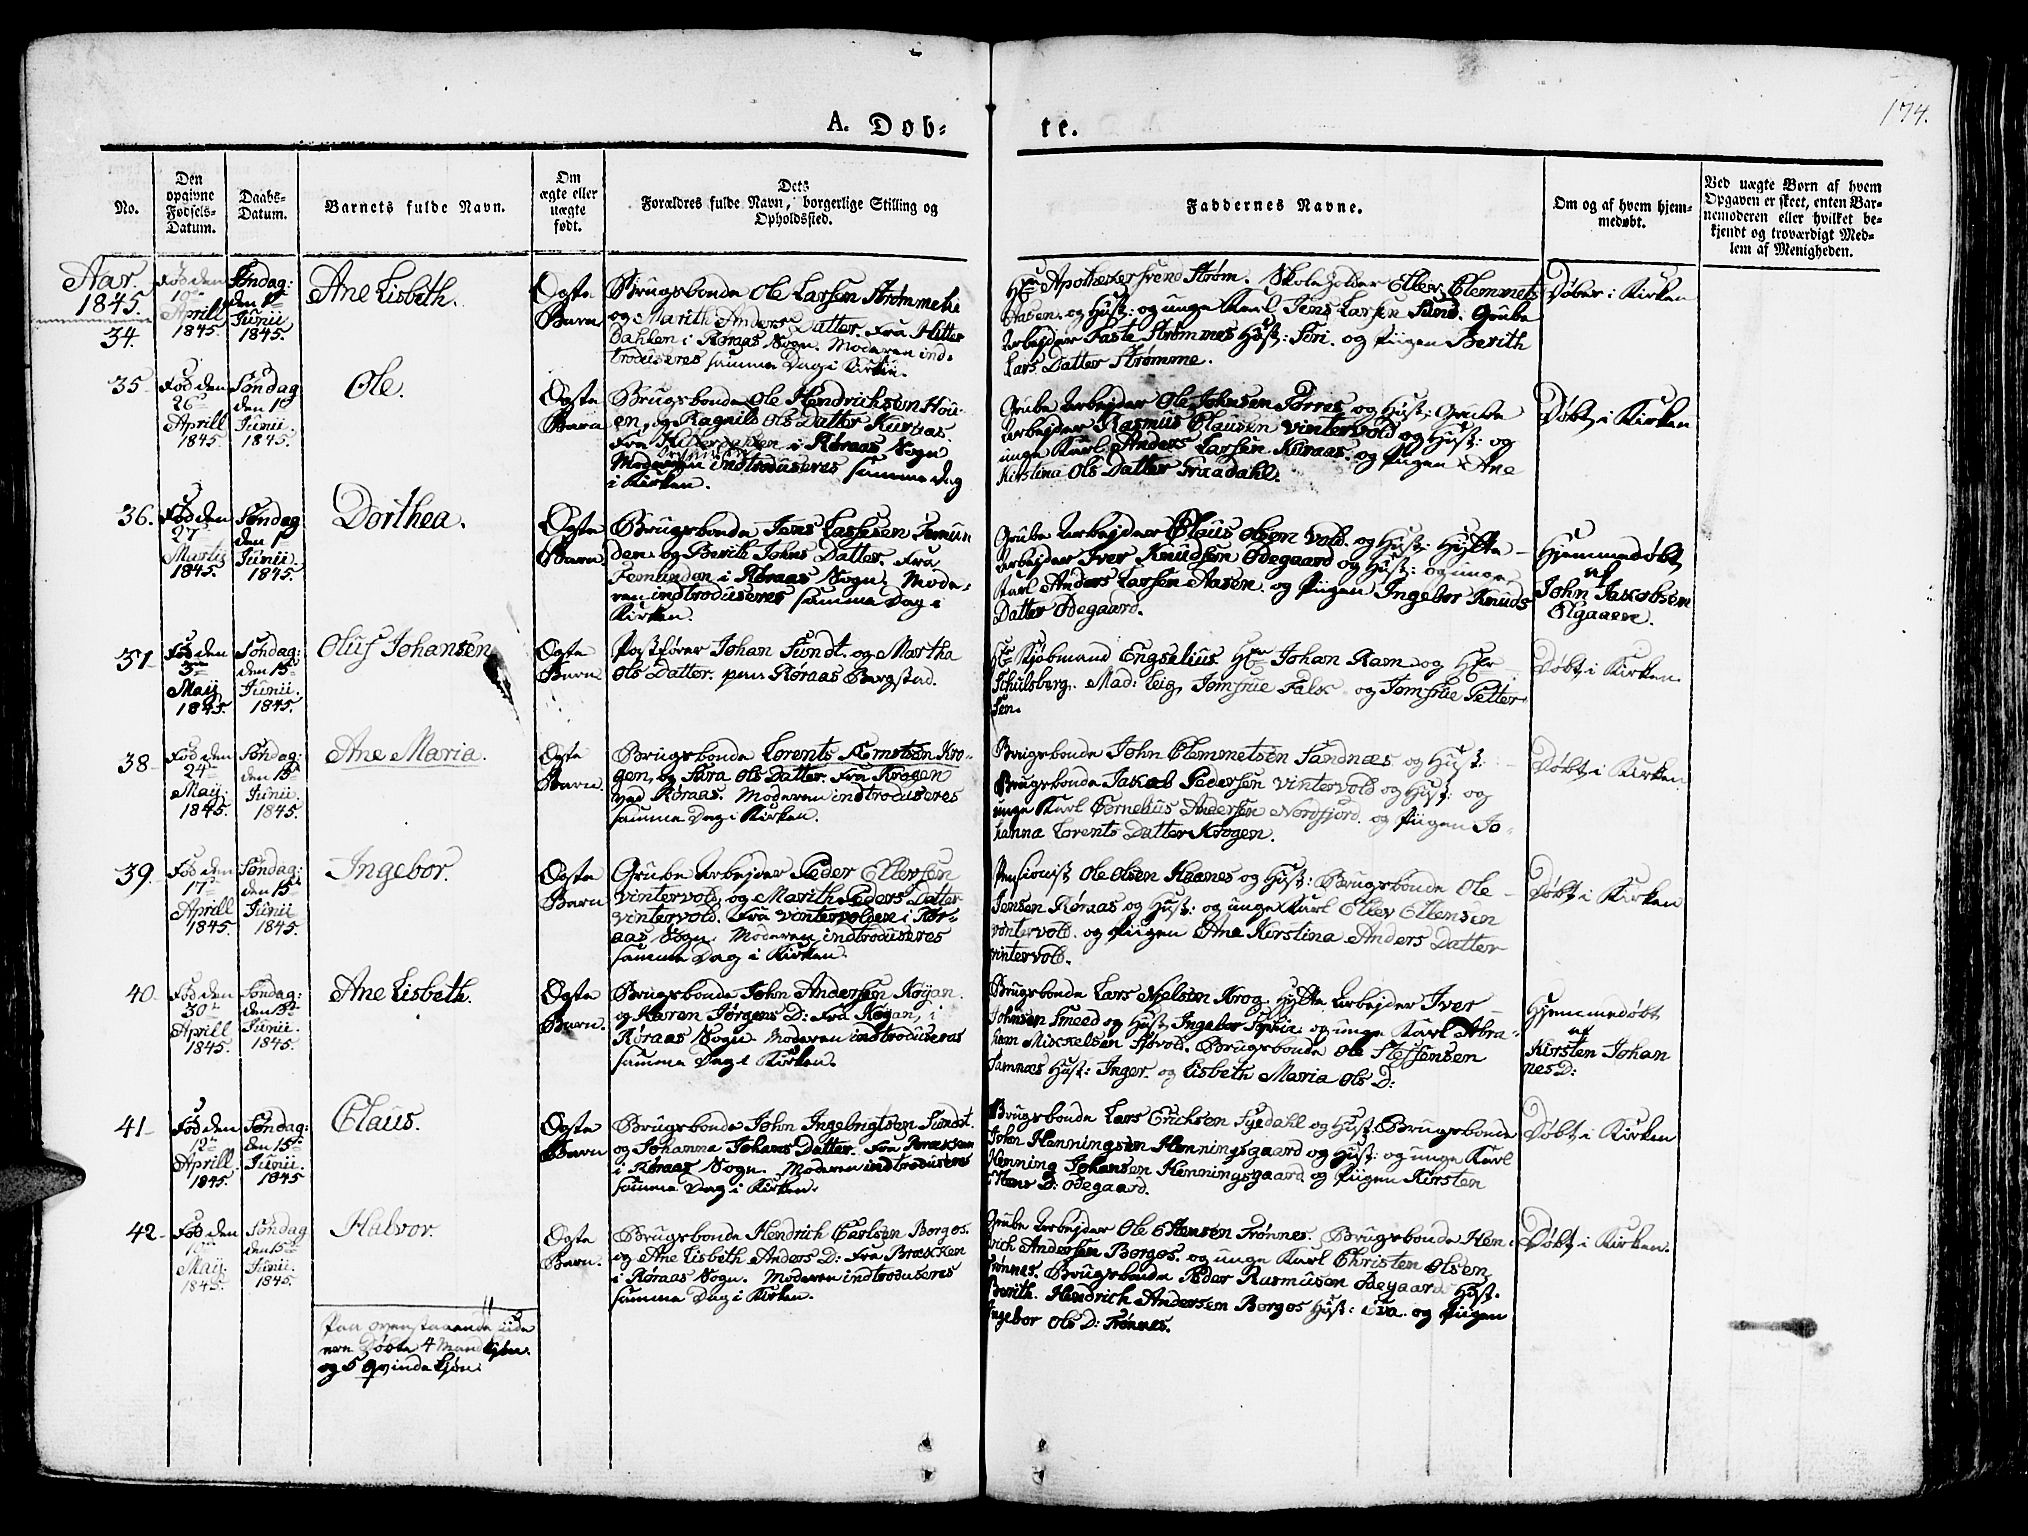 174.
A. Døb-
te.
No.
Den
opgivne
Fødsels-
Datum.
Daabs-
Datum.
Barnets fulde Navn.
Om
ægte eller
uægte
født.
Dets
Forældres fulde Navn, borgerlige Stilling og
Opholdssted.
Faddernes Navne.
Om og af hvem hjem-
medøbt.
Ved uægte Børn af hvem
Opgaven er skeet, enten Bar-
nemoderen eller hvilket be-
kjendt og troværdigt Med-
lem af Menigheden.
Aar.
1845.
34.
Fød den
19de
Aprill
1845.
Søndag:
den 1ste
Junii
1845.
Ane Lisbeth.
Ægte
Barn
Brugsbonde Ole Larsen Strømmeki
og Marith Anders Datter. Fra Hitter
Dahlen i Røraas Sogn. Moderen ind-
troduseres samme Dag i Kirken.
Hr Apotheker Svend Strøm. Skoleholder Ellev Clemmets
og Hust: og unge Karl Jens Larsen Sund. Grube
Arbejder Faste Strømmes Hust: Siri. og Piigen Berith
Lars Datter Strømme.
Døbt i Kirken
35.
Fød den
26de
Aprill
1845.
Søndag
den 1ste
Junii.
1845.
Ole.
Ægte
Barn
Brugsbonde Ole Hendrichsen Hou-
en, og Ragnild Ols Datter Kuraas.
Fra Hitterdahlen i Røraas Sogn
Moderen indtroduseres samme Dag
i Kirken.
Grube Arbejder Ole Johnsen Torres og Hust: Grube
Arbejder Rasmus Clausen Vintervold og Hust: og
unge Karl Anders Larsen Kuraas. og Piigen Ane
Kirstina Ols Datter Graadahl.
Døbt i Kirken
36.
Fød den
27de
Martii
1845.
Søndag
den 1ste
Junii.
1845.
Dorthea.
Ægte
Barn
Brugsbonde Jens Lassesen Femun
den og Berith Johns Datter. Fra
Femunden i Røraas Sogn. Mode-
ren indtroduseres samme Dag i
Kirken.
Grube Arbejder Claus Olsen Vold. og Hust: Hytte
Arbejder Iver Knudsen Ødegaard og Hust: og unge
Karl Anders Larsen Aasen. og Piigen Ingebor Knuds
Datter Ødegaard.
Hjemmedøbt
af
John Jakobsen
Elgaaen.
37
Fød den
3de
Maij
1845.
Søndag:
den 15de
Junii.
1845.
Oluf Johansen
Ægte
Barn
Postfører Johan Sundt. og Martha
Ols Datter. paa Røraas Bergstad.
Hr Kjøbmand Engzelius. Hr Johan Ram og Hr
Schulsberg. Mad: Leig, Jomfrue Falk og Jomfrue Petter
sen.
Døbt i Kirken.
38
Fød den
24de
Maij.
1845.
Søndag:
den 15de
Junii.
1845.
Ane Maria.
Ægte
Barn.
Brugsbonde Lorents Kro-
gen, og Sara Ols Datter. Fra Krogen
ved Røraas. Moderen indtroduseres
samme Dag i Kirken.
Brugsbonde John Clemmetsen Sandnæs og Hust:
Brugsbonde Jakob Pedersen Vintervold og Hust: og
unge Karl Cornelius Andersen Nordfjord. og Piigen Jo-
hanna Lorents Datter Krogen.
Døbt i Kirken.
39.
Fød den
17de
Aprill
1845.
Søndag:
den 15de
Junii
1845.
Ingebor.
Ægte
Barn
Grube Arbejder Peder Ellevsen
Vintervold, og Marith Peders Datter
Vintervold. Fra Vintervolden i Rør-
aas Sogn. Moderen indtroduseres
samme Dag i Kirken.
Pensionist Ole Olsen Haanes og Hust: Brugsbonde Ole
Jensen Røraas og Hust: og unge Karl Ellev Ellevsen
Vintervold. og Piigen Ane Kirstina Anders Datter
Vintervold.
Døbt i Kirken
40
Fød den
30te
Aprill
1845.
Søndag:
den 15de
Junii.
1845.
Ane Lisbeth.
Ægte
Barn.
Brugsbonde John Andersen Køjan.
og Karen Jørgens D: Fra Køjan, i
Røraas Sogn. Moderen indtroduseres
samme Dag i Kirken.
Brugsbonde Lars Nielsen Krog. Hytte Arbejder Iver
Johnsen Smeed og Hust: Ingebor Sophia: og unge Karl Abra-
ham Mikkelsen Sjøvold. Brugsbonde Ole Steffensen
Tamnæs Hust: Inger. og Lisbeth Maria Ols D:
Hjemmedøbt
af
Kirsten Johan
nes D:
41
Fød den
12te
Aprill.
1845.
Søndag:
den 15de
Junii.
1845
Claus.
Ægte
Barn
Brugsbonde John Ingebrigtsen Sundt.
og Johanna Johans Datter. Fra Brækken
i Røraas Sogn. Moderen indtroduseres
samme Dag i Kirken.
Brugsbonde Lars Erichsen Syedahl og Hust: Brugsbonde
John Henningsen Henningsgaard og Hust: og unge Karl
Henning Johansen Henningsgaard og Piigen Kirsten
D: Ødegaard.
Døbt i Kirken
42
Fød den
10de
Maij.
1845.
Søndag
den 15de
Junii.
1845.
Halvor.
Ægte
Barn.
Brugsbonde Hendrich Carlsen Borgos.
og Ane Lisbeth Anders D: Fra Brækken
i Røraas Sogn. Moderen indtroduseres
samme Dag i Kirken.
Grube Arbejder Ole Ellensen Trønnes. Brugsbonde Hen-
rich Andersen Borgos. og unge Karl Christen Olsen
Trønnes. Brugsbonde Peder Rasmusen Ødegaards Hust:
Berith. Hendrich Andersen Borgos Hust: Eva. og Piigen
Ingebor Ols D: Trønnes.
Døbt i Kirken.
Paa ovenstaaende Side
ere Døbte 4 Mandkjøn.
og 5 Qvindekjøn.